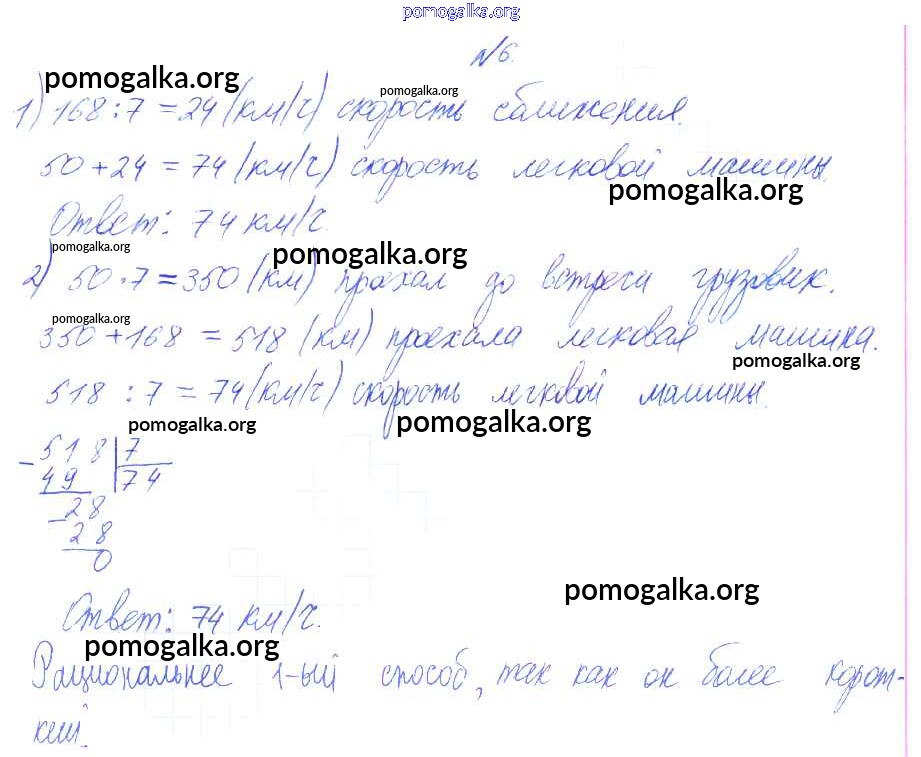 pomogalka.org
№6.
pomogalka.org
pomogalka.org
1) 168 : 7 = 24 (км/ч) скорость сближения.
50 + 24 = 74 (км/ч) скорость легковой машины.
pomogalka.org
Ответ: 74 км/ч.
pomogalka.org
pomogalka.org
2) 50 · 7 = 350 (км) проехал до встречи грузовик.
pomogalka.org
350 + 168 = 518 (км) проехала легковая машина.
pomogalka.org
518 : 7 = 74 (км/ч) скорость легковой машины.
pomogalka.org
pomogalka.org
- 518 | 7
49 | 74
- 28
28
0
pomogalka.org
Ответ: 74 км/ч.
pomogalka.org
Рациональнее 1-ый способ, так как он более корот-
кий.